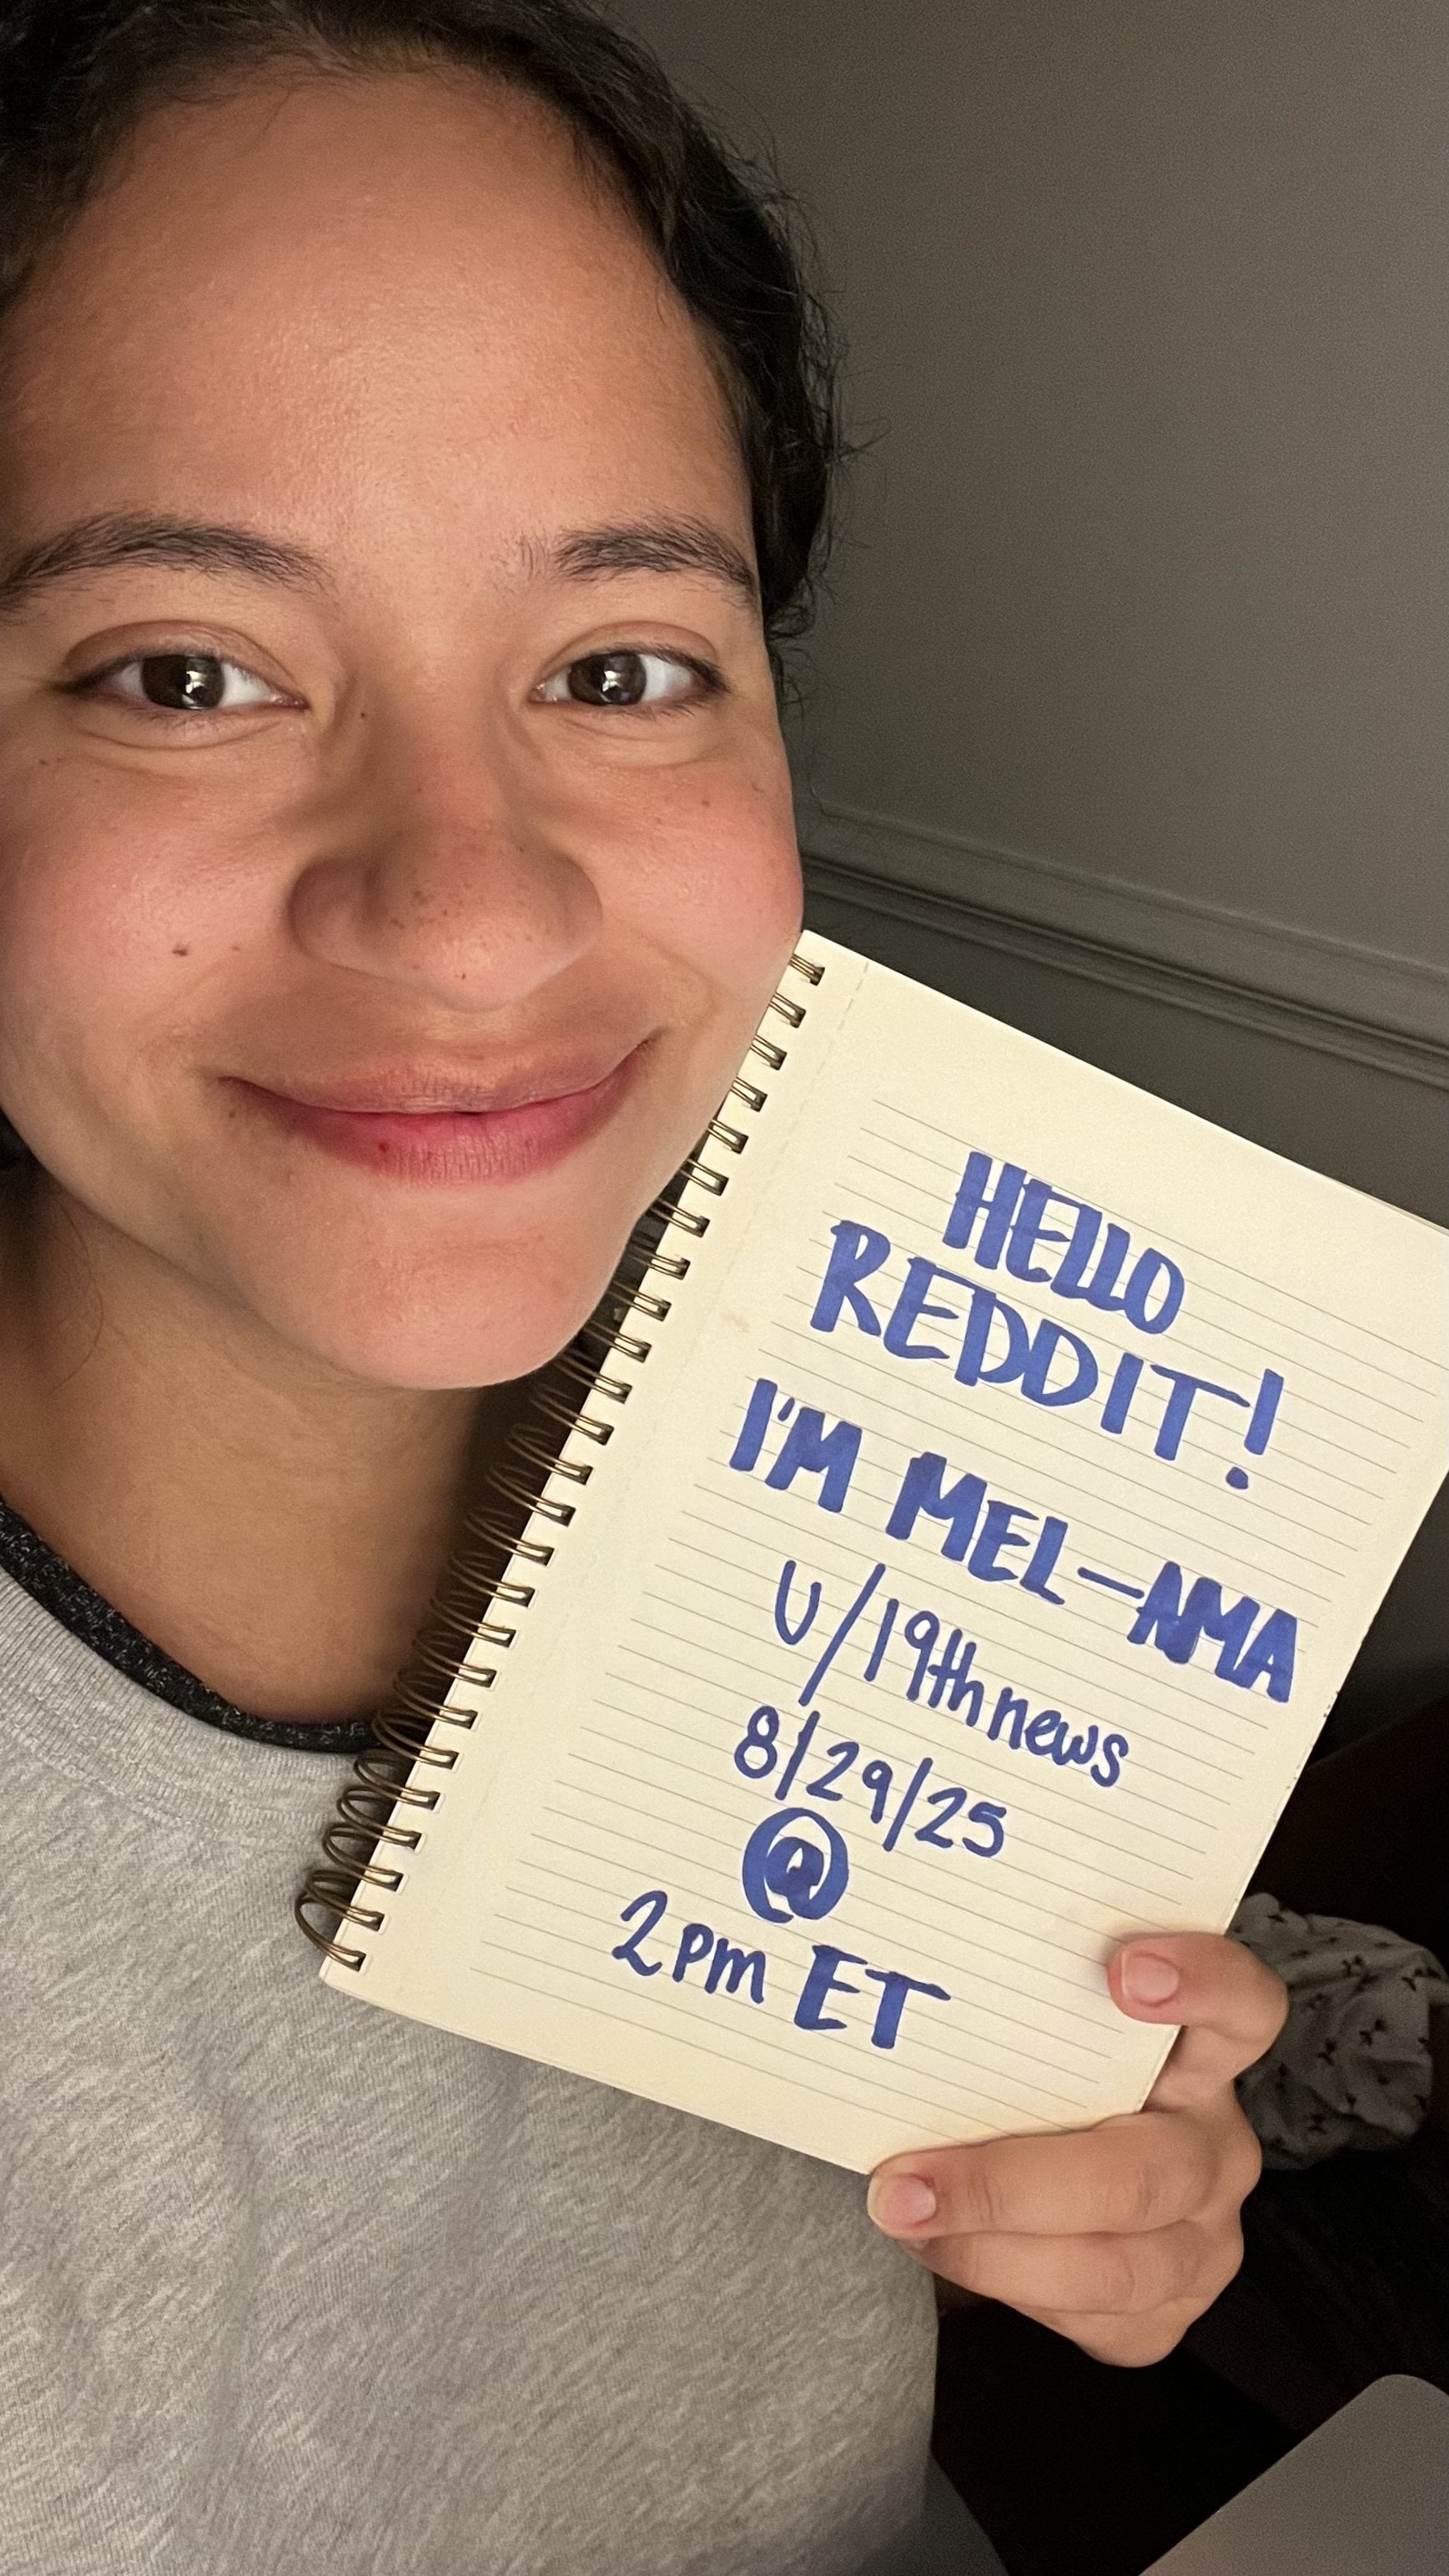 HELLO
REDDIT!
I'M MEL-AMA
U/19thnews
8/29/25
@
2pm ET